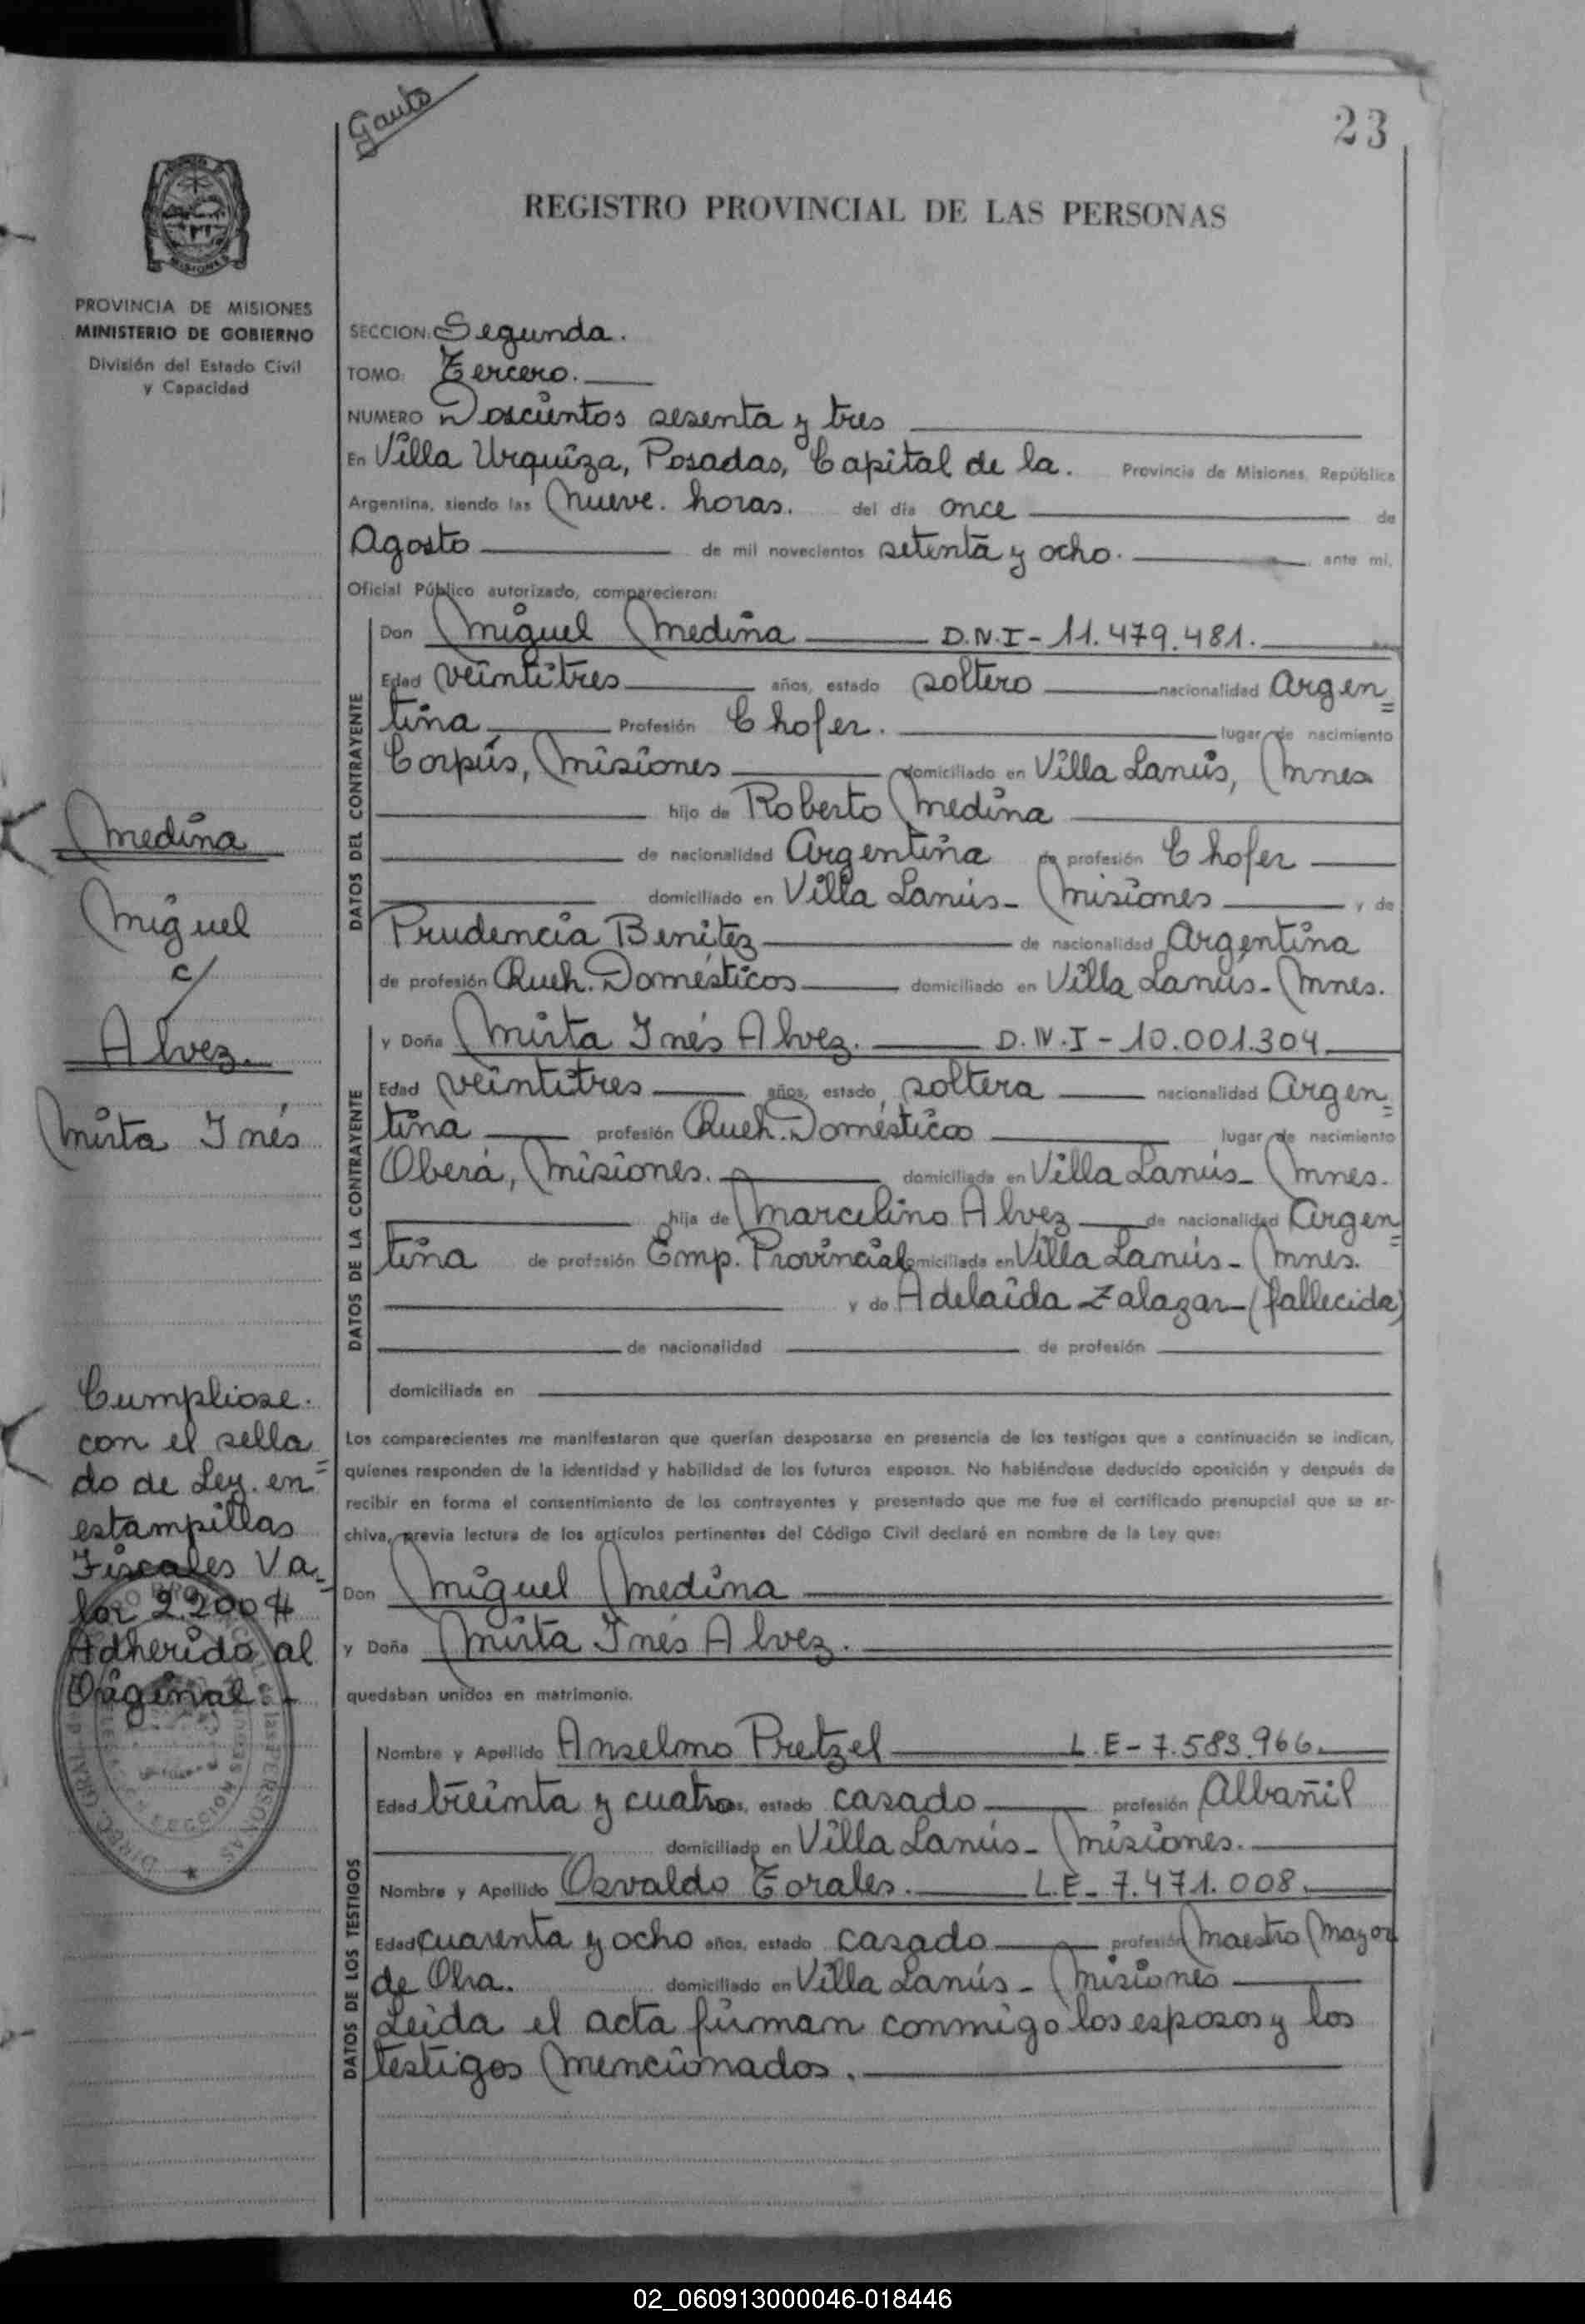 Gauto
23
REGISTRO PROVINCIAL DE LAS PERSONAS
MISIONES
PROVINCIA DE MISIONES
MINISTERIO DE GOBIERNO
División del Estado Civil
y Capacidad
SECCION: Segunda.
TOMO: Tercero.
NUMERO Doscientos sesenta y tres
En Villa Urquiza, Posadas, Capital de la. Provincia de Misiones, República
Argentina, siendo las Nueve. horas. del día once de
Agosto de mil novecientos setenta y ocho. ante mi,
Oficial Público autorizado, comparecieron:
DATOS DEL CONTRAYENTE
Don Miguel Medina D.N.I- 11.479.481.
Edad veintitres años, estado soltero nacionalidad Argen=
tina Profesión Chofer. lugar de nacimiento
Corpús, Misiones domiciliado en Villa Lanús, Mnes
hijo de Roberto Medina
de nacionalidad Argentina de profesión Chofer
domiciliado en Villa Lanús- Misiones y de
Prudencia Benitez de nacionalidad Argentina
de profesión Queh. Domésticos domiciliado en Villa Lanús- Mnes.
DATOS DE LA CONTRAYENTE
y Doña Mirta Inés Alvez. D.N.I- 10.001.304
Edad veintitres años, estado soltera nacionalidad Argen=
tina profesión Queh. Domésticos lugar de nacimiento
Oberá, Misiones. domiciliada en Villa Lanús- Mnes.
hija de Marcelino Alvez de nacionalidad Argen=
tina de profesión Emp. Provincial domiciliada en Villa Lanús- Mnes.
y de Adelaida Zalazar- (fallecida)
de nacionalidad de profesión
domiciliada en
Los comparecientes me manifestaron que querían desposarse en presencia de los testigos que a continuación se indican,
quienes responden de la identidad y habilidad de los futuros esposos. No habiéndose deducido oposición y después de
recibir en forma el consentimiento de los contrayentes y presentado que me fue el certificado prenupcial que se ar-
chiva, previa lectura de los artículos pertinentes del Código Civil declaré en nombre de la Ley que:
Don Miguel Medina
y Doña Mirta Inés Alvez.
quedaban unidos en matrimonio.
DATOS DE LOS TESTIGOS
Nombre y Apellido Anselmo Pretzel L.E- 7.583.966.
Edad treinta y cuatro años, estado casado profesión Albañil
domiciliado en Villa Lanús- Misiones.
Nombre y Apellido Osvaldo Torales. L.E- 7.471.008.
Edad cuarenta y ocho años, estado casado profesión Maestro Mayor
de Obra. domiciliado en Villa Lanús- Misiones
Leída el acta firman conmigo los esposos y los
testigos mencionados.
Medina
Miguel
c/
Alvez.
Mirta Inés
Cumpliose.
con el sella=
do de Ley. en
estampillas
Fiscales Va=
lor 2.200 $
Adherido al
Original.-
02_060913000046-018446